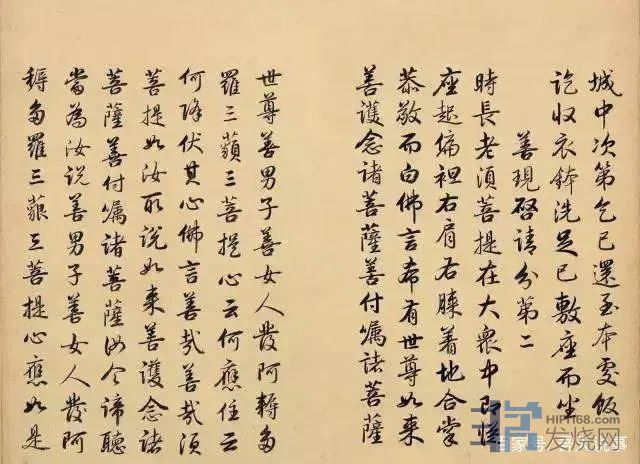 城中次第乞已還至本處飯
訖收衣鉢洗足已敷座而坐
善現啓請分第二
時長老須菩提在大衆中即從
座起偏袒右肩右膝着地合掌
恭敬而白佛言希有世尊如来
善護念諸菩薩善付囑諸菩薩
世尊善男子善女人發阿耨多
羅三藐三菩提心云何應住云
何降伏其心佛言善哉善哉須
菩提如汝所說如来善護念諸
菩薩善付囑諸菩薩汝今諦聽
當為汝說善男子善女人發阿
耨多羅三藐三菩提心應如是
HIFI168.com
发烧网
百家号